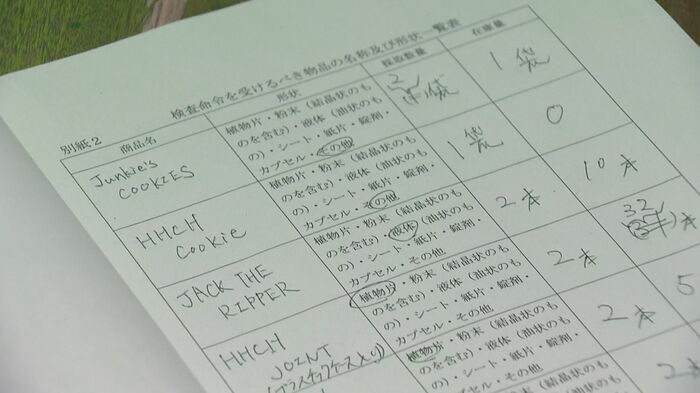 検査命令を受けるべき物品の名称及び形状一覧表
別紙2
商品名
形状
採取数量
在庫量
Junkie's
COOKIES
植物片・粉末(結晶状のも
のを含む)・液体(油状のも
の)・シート・紙片・錠剤・
カプセル・その他
2
袋
1袋
HHCH
Cookie
植物片・粉末(結晶状のも
のを含む)・液体(油状のも
の)・シート・紙片・錠剤・
カプセル・その他
1袋
0
JACK THE
RIPPER
植物片・粉末(結晶状のも
のを含む)・液体(油状のも
の)・シート・紙片・錠剤・
カプセル・その他
2本
10本
HHCH
JOINT
(プラスチックケース入り)
植物片・粉末(結晶状のも
のを含む)・液体(油状のも
の)・シート・紙片・錠剤・
カプセル・その他
2本
32
本
植物片・粉末(結晶状のも
のを含む)・液体(油状のも
の)・シート・紙片・錠剤・
カプセル・その他
2本
5
2本